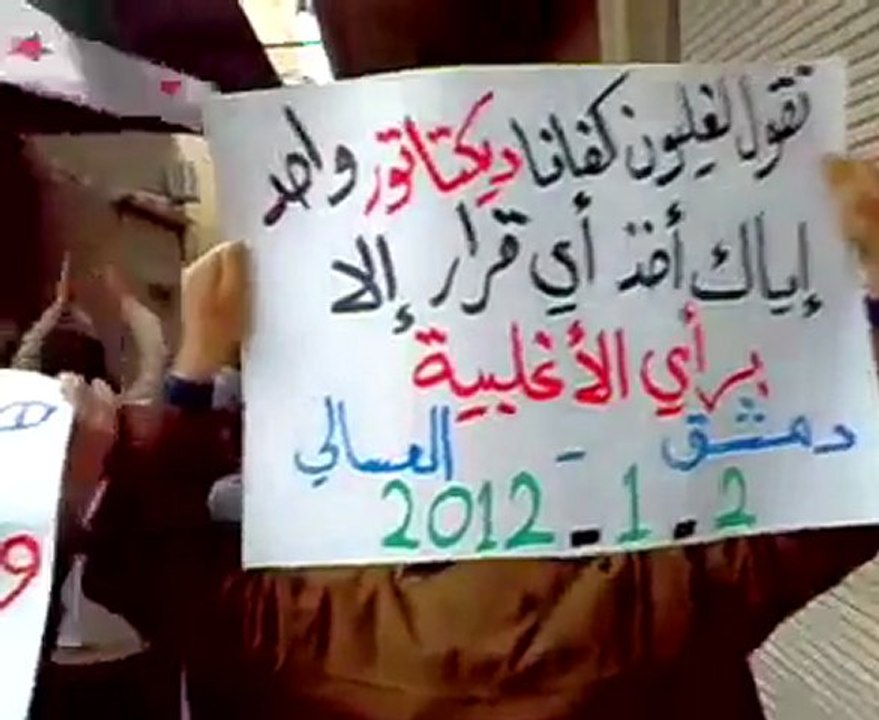 نقول لغليون كفانا ديكتاتور واحد
إياك أخذ أي قرار إلا
برأي الأغلبية
دمشق - العسالي
2012 - 1 - 2
و